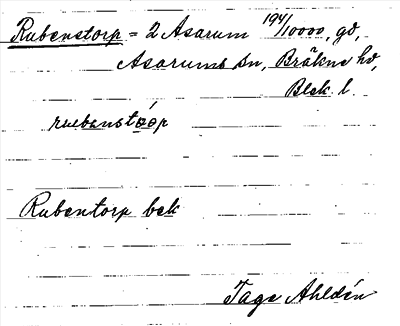 Rubenstorp = 2 Asarum 194/10000, gd,
Asarums sn, Bräkne hd,
Blek. l.
rubenstórp
Rubentorp bek
Tage Ahldén